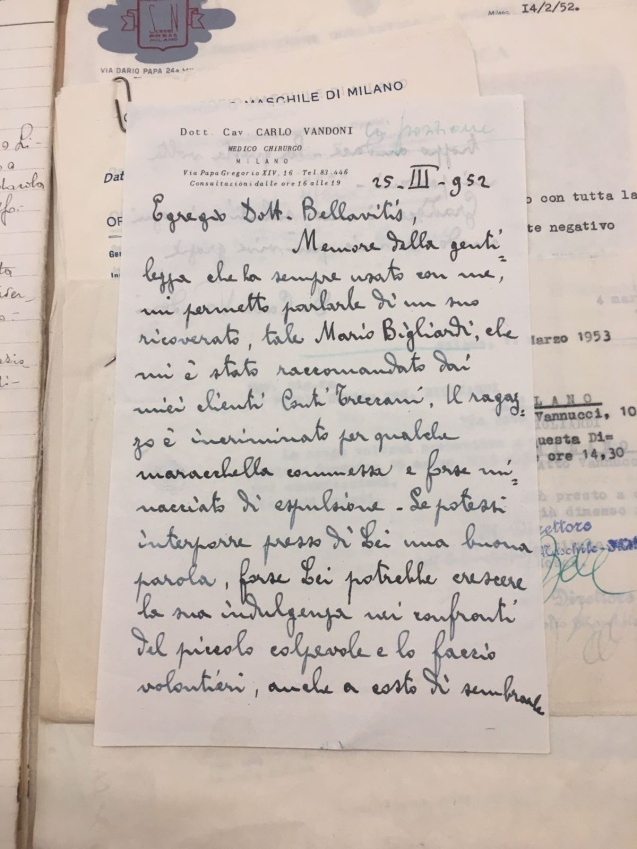 Milano, 14/2/52.
VIA DARIO PAPA 24
MASCHILE DI MILANO
Dott. Cav CARLO VANDONI
MEDICO CHIRURGO
MILANO
Via Papa Gregorio XIV, 16 - Tel. 83-446
Consultazioni dalle ore 16 alle 19
25-III-952
Egregio Dott. Bellavitis,
Memore della genti=
lezza che ha sempre usato con me,
mi permetto parlarle di un suo
ricoverato, tale Mario Bigliardi, che
mi è stato raccomandato dai
miei clienti Conti Treccani. Il ragaz=
zo è incriminato per qualche
marachella commessa e forse mi=
nacciato di espulsione - Se potessi
interporre presso di Lei una buona
parola, forse Lei potrebbe crescere
la sua indulgenza nei confronti
del piccolo colpevole e lo faccio
volontieri, anche a costo di sembrarle
Dat
con tutta la
te negativo
arzo 1953
LANO
Vannucci, 10
uesta Di=
ore 14,30